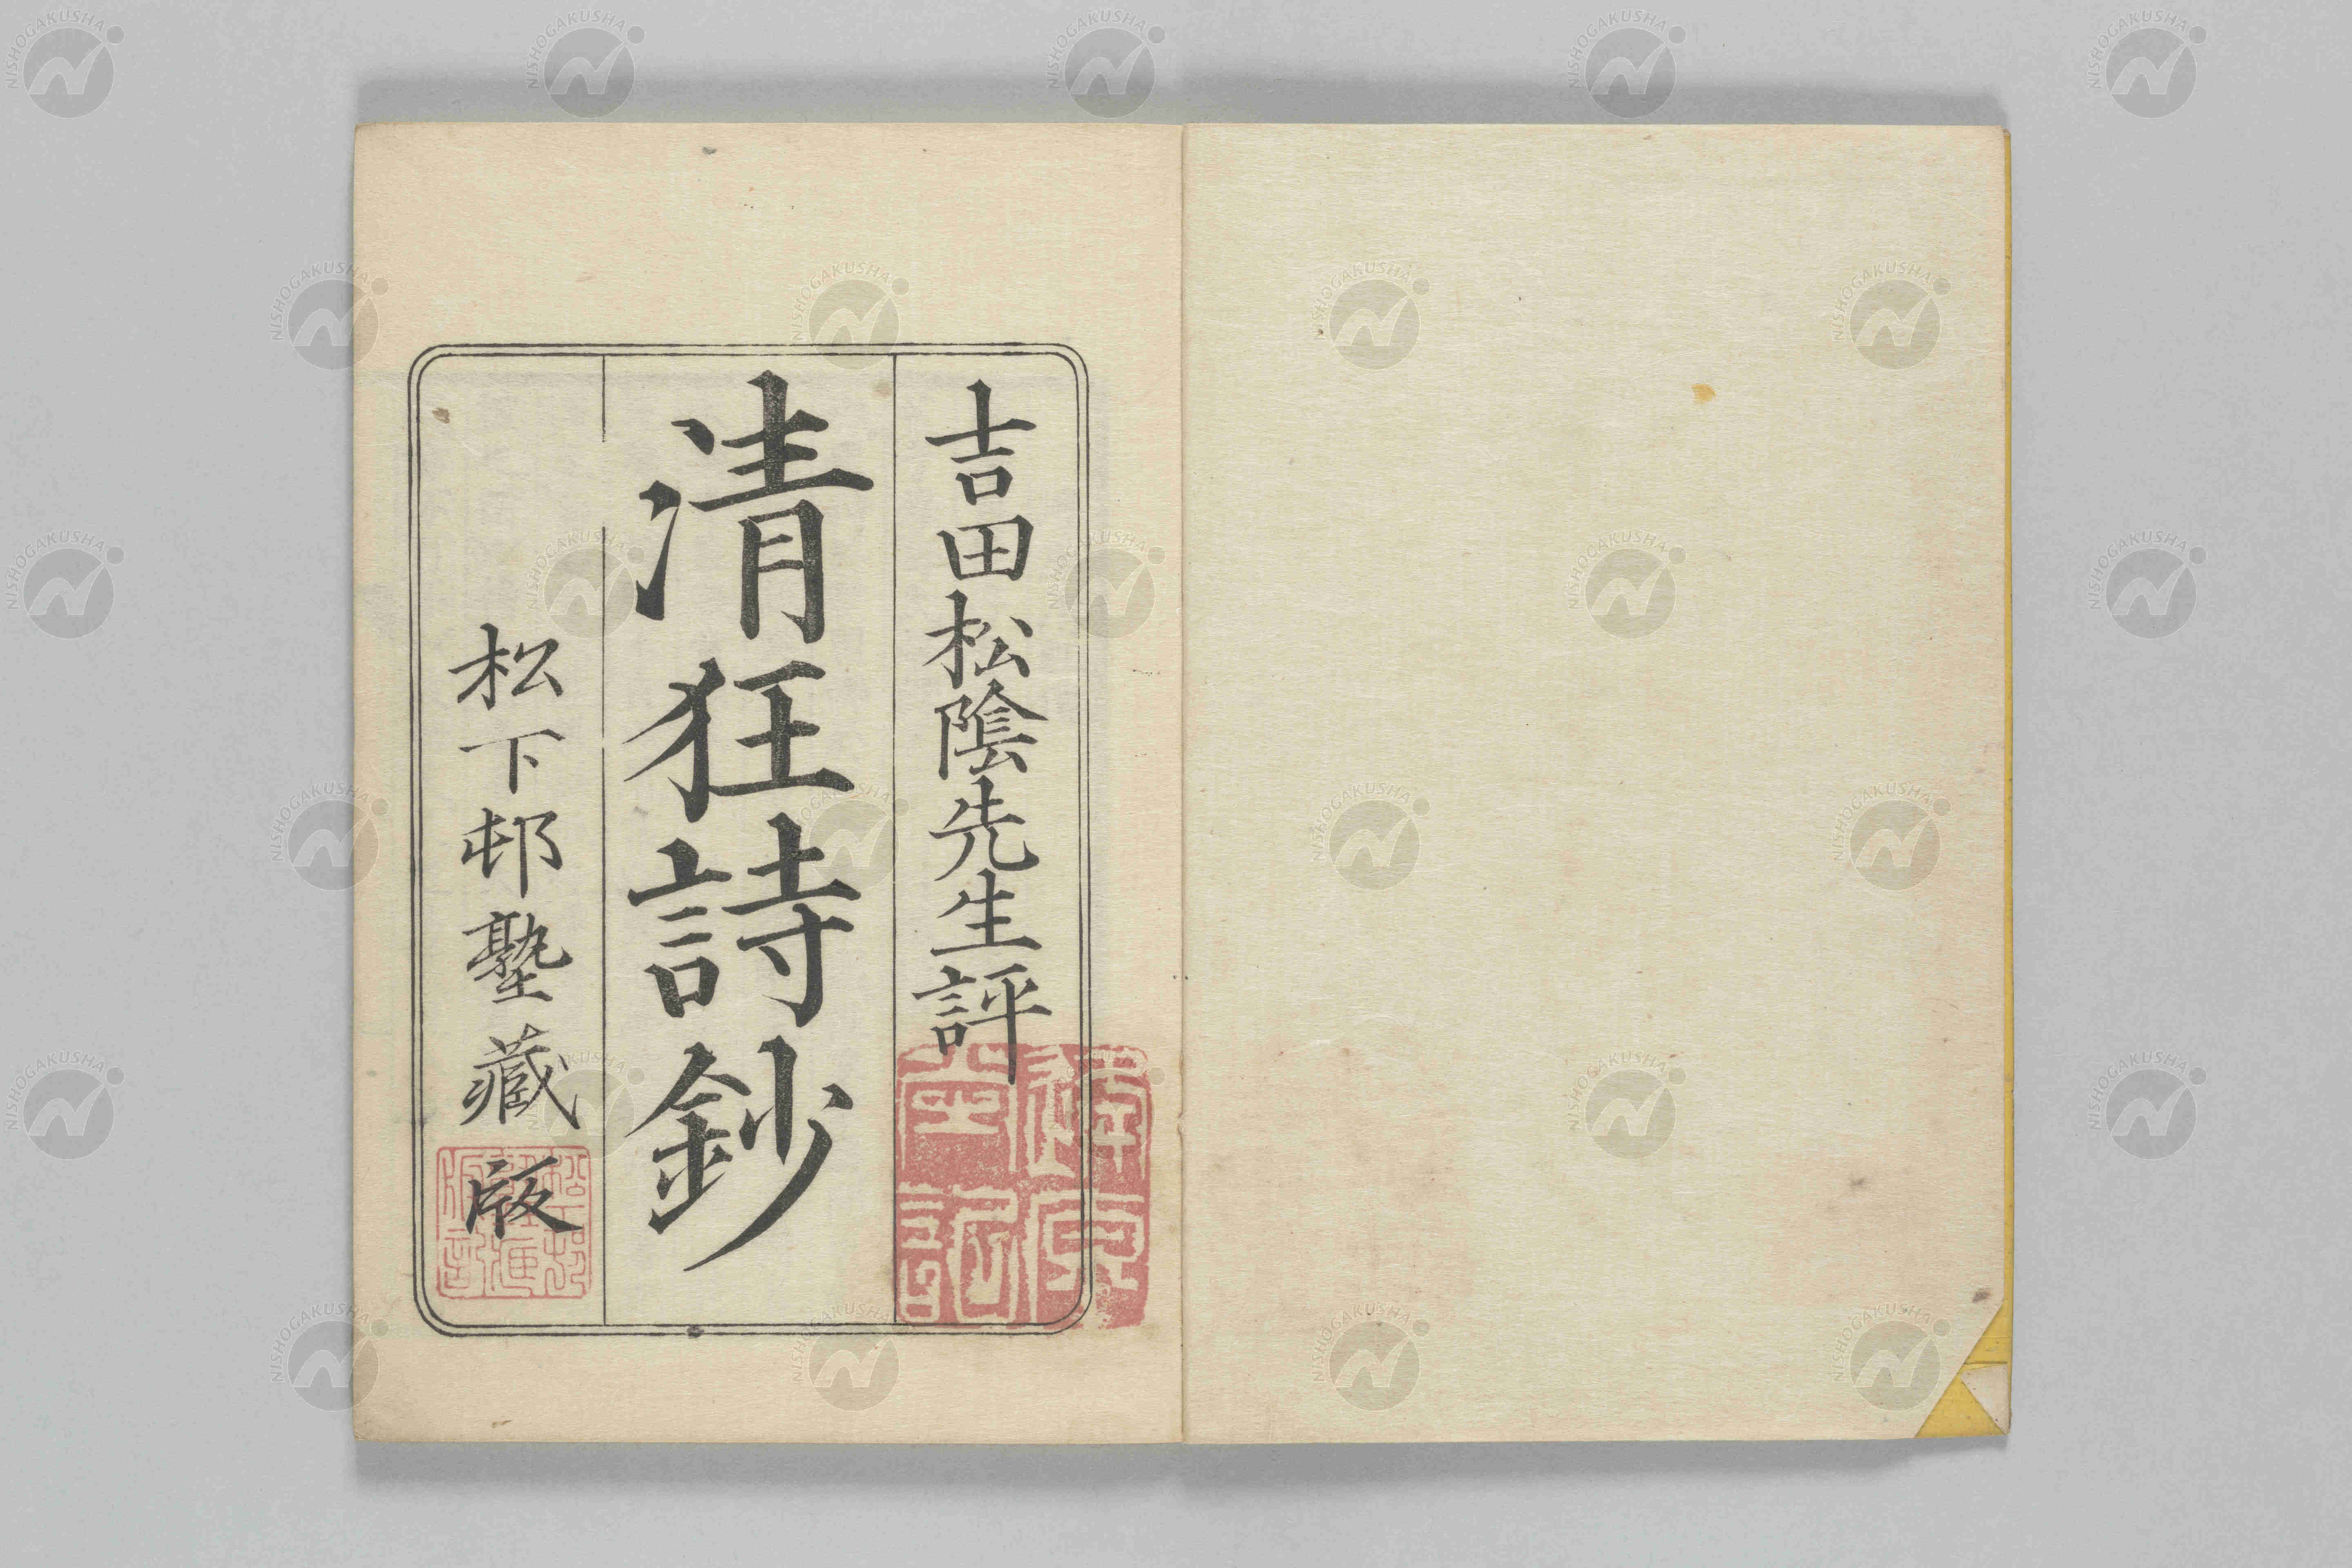 吉田松陰先生評
清狂詩鈔
松下邨塾藏版
NISHOGAKUSHA